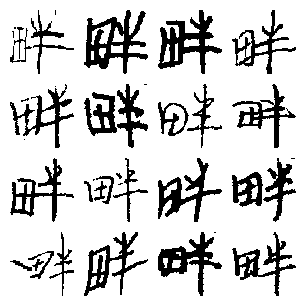 畔畔畔畔
畔畔畔畔
畔畔畔畔
畔畔畔畔